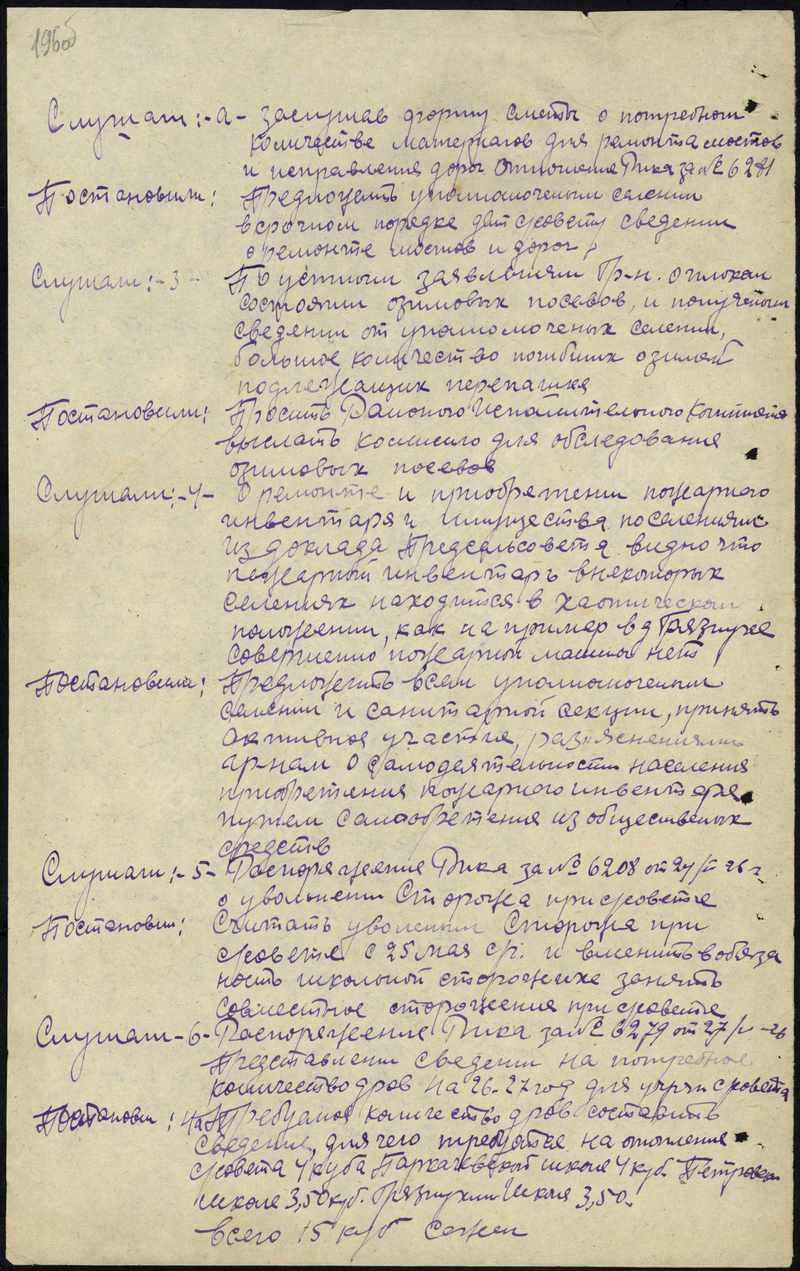 195об
Слушали:-а- заслушав форму сметы о потребном
количестве материалов для ремонта мостов
и исправления дорог отношение Рика за № 6281
Постановили: Предложить уполномоченым селении
в срочном порядке дат с/совету сведении
о ремонте мостов и дорог
Слушали:-3- По устным заявлениям Гр-н. о плохом
состоянии озимовых посевов, и полученым
сведении от уполномоченых селении,
большое количество погибших озимей
подлежащих перепашке
Постановили: Просить Районого Исполнительного Комитета
выслать комиссию для обследования
озимовых посевов
Слушали:-4- О ремонте и приобретении пожарного
инвентаря и имущества по селениям
из доклада Предсельсовета видно что
пожарной инвентарь в некоторых
селениях находится в хаотическом
положении, как на пример в д Грязнухе
совершенно пожарной машины нет
Постановили: Предложить всем уполномоченым
селении и санитарной секции, принять
активное участие, раз'яснениями
гр-нам о самодеятельности населения
приобретения пожарного инвентаря
путем самообретения из общественых
средств
Слушали:-5- Распоряжение Рика за № 6208 от 24/V 26 г
о увольнении Сторожа при с/совете
Постановили: Считать уволеным Сторожа при
с/совете с 25 мая с/г. и вменить в обяза
ность школьной сторожихе занять
совместное сторожения при с/совете
Слушали-6- Распоряжение Рика за № 6279 от 27/V-26
Представлении сведении на потребное
количество дров на 26-27 год для с/совета
Постановили: На Требуемое количество дров составить
сведение, для чего требуется на отопление
с/совета 4 куба Паркачевской школе 4 куб. Петровской
школе 3,50 куб. Грязнухин Школе 3,50.
всего 15 куб сажен